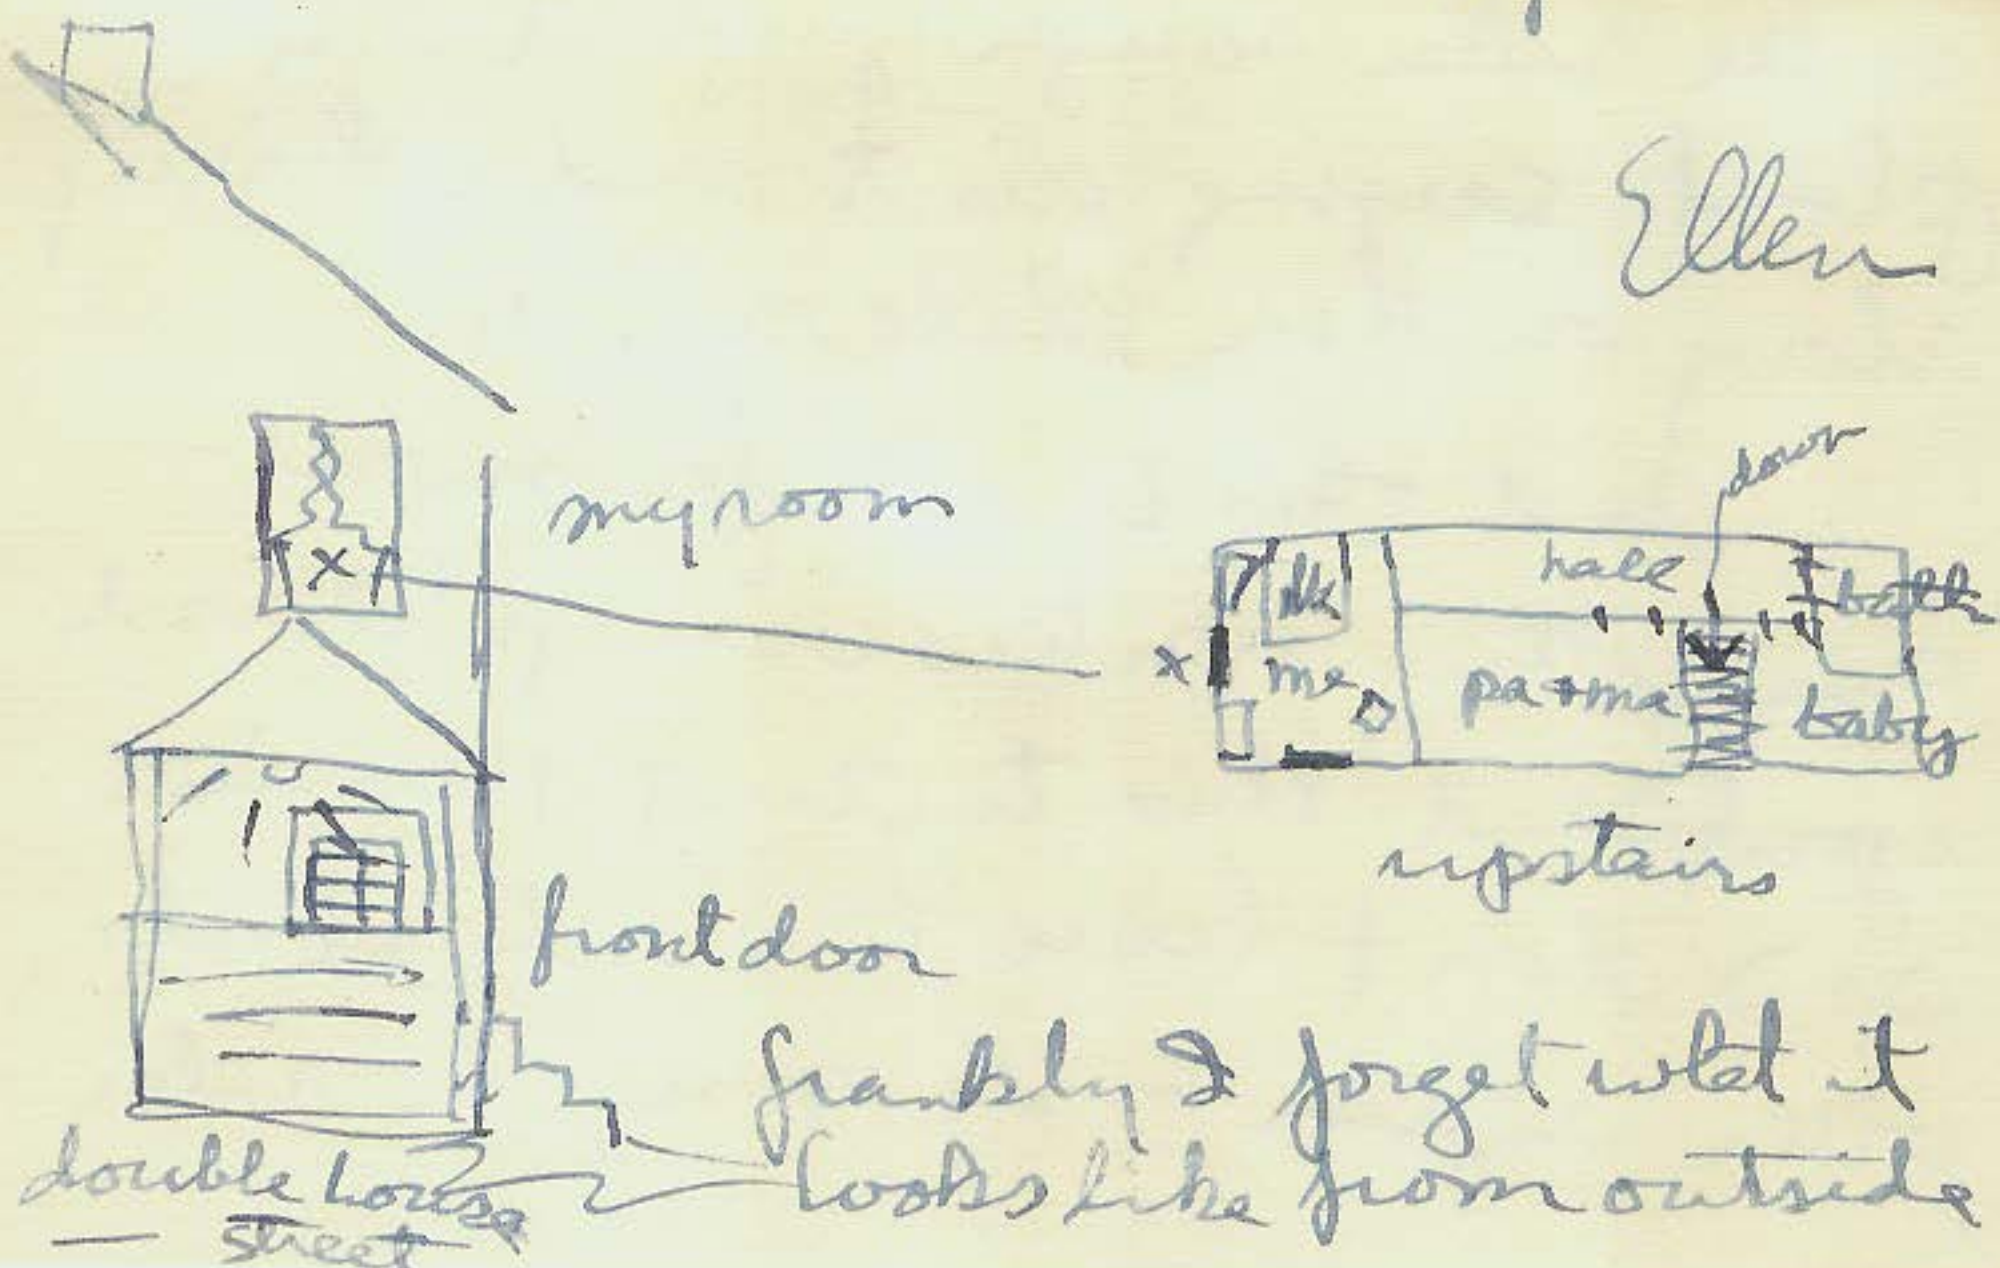 Ellen
my room
down
hall
bath
me
pa + ma
baby
upstairs
front door
frankly I forget what it
looks like from outside
double house
street
x
x